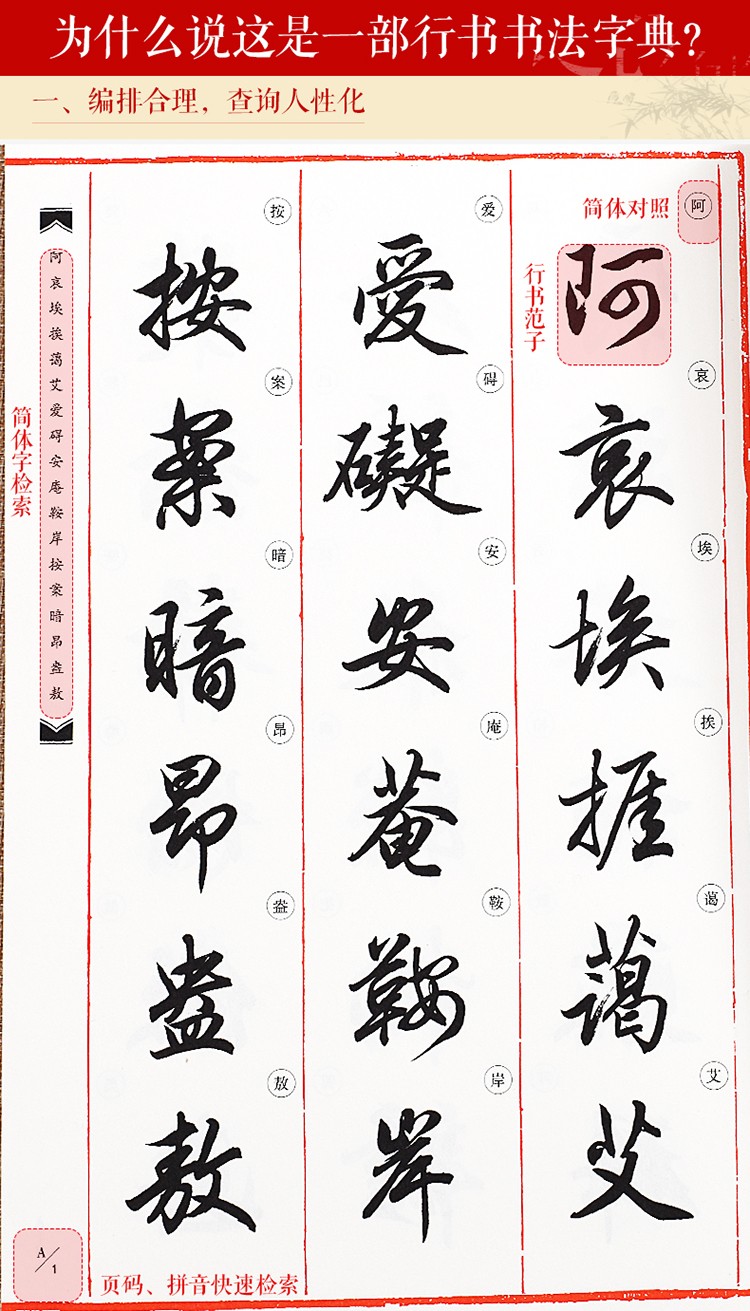 为什么说这是一部行书书法字典？
一、编排合理，查询人性化
简体对照
阿
行书范子
阿
哀
哀
埃
埃
挨
捱
蔼
藹
艾
艾
爱
愛
碍
礙
安
安
庵
菴
鞍
鞍
岸
岸
按
按
案
案
暗
暗
昂
昂
盎
盎
敖
敖
阿哀埃挨蔼艾爱碍安庵鞍岸按案暗昂盎敖
简体字检索
A/1
页码、拼音快速检索